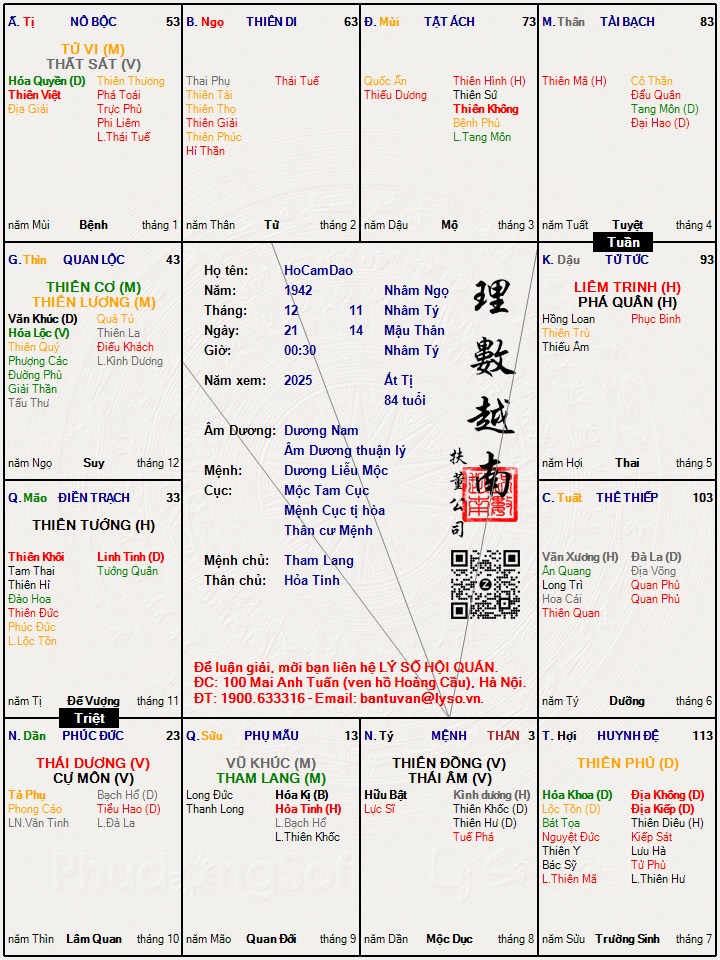 Ấ. Tị NÔ BỘC 53
TỬ VI (M)
THẤT SÁT (V)
Hóa Quyền (D) Thiên Thương
Thiên Việt Phá Toái
Địa Giải Trực Phù
Phi Liêm
L.Thái Tuế
năm Mùi Bệnh tháng 1
B. Ngọ THIÊN DI 63
Thai Phụ Thái Tuế
Thiên Tài
Thiên Thọ
Thiên Giải
Thiên Phúc
Hỉ Thần
năm Thân Tử tháng 2
Đ. Mùi TẬT ÁCH 73
Quốc Ấn Thiên Hình (H)
Thiếu Dương Thiên Sứ
Thiên Không
Bệnh Phù
L.Tang Môn
năm Dậu Mộ tháng 3
M. Thân TÀI BẠCH 83
Thiên Mã (H) Cô Thần
Đẩu Quân
Tang Môn (D)
Đại Hao (D)
năm Tuất Tuyệt tháng 4
Tuần
G. Thìn QUAN LỘC 43
THIÊN CƠ (M)
THIÊN LƯƠNG (M)
Văn Khúc (D) Quả Tú
Hóa Lộc (V) Thiên La
Thiên Quý Điếu Khách
Phượng Các L.Kình Dương
Đường Phù
Giải Thần
Tấu Thư
năm Ngọ Suy tháng 12
Họ tên: HoCamDao
Năm: 1942 Nhâm Ngọ
Tháng: 12 11 Nhâm Tý
Ngày: 21 14 Mậu Thân
Giờ: 00:30 Nhâm Tý
Năm xem: 2025 Ất Tị
84 tuổi
Âm Dương: Dương Nam
Âm Dương thuận lý
Mệnh: Dương Liễu Mộc
Cục: Mộc Tam Cục
Mệnh Cục tị hòa
Thân cư Mệnh
Mệnh chủ: Tham Lang
Thân chủ: Hỏa Tinh
理數越南
扶董公司
Để luận giải, mời bạn liên hệ LÝ SỐ HỘI QUÁN.
ĐC: 100 Mai Anh Tuấn (ven hồ Hoàng Cầu), Hà Nội.
ĐT: 1900.633316 - Email: bantuvan@lyso.vn.
K. Dậu TỬ TỨC 93
LIÊM TRINH (H)
PHÁ QUÂN (H)
Hồng Loan Phục Binh
Thiên Trù
Thiếu Âm
năm Hợi Thai tháng 5
Q. Mão ĐIỀN TRẠCH 33
THIÊN TƯỚNG (H)
Thiên Khôi Linh Tinh (D)
Tam Thai Tướng Quân
Thiên Hỉ
Đào Hoa
Thiên Đức
Phúc Đức
L.Lộc Tồn
năm Tị Đế Vượng tháng 11
C. Tuất THÊ THIẾP 103
Văn Xương (H) Đà La (D)
Ân Quang Địa Võng
Long Trì Quan Phù
Hoa Cái Quan Phủ
Thiên Quan
năm Tý Dưỡng tháng 6
Triệt
N. Dần PHÚC ĐỨC 23
THÁI DƯƠNG (V)
CỰ MÔN (V)
Tả Phụ Bạch Hổ (D)
Phong Cáo Tiểu Hao (D)
LN.Văn Tinh L.Đà La
năm Thìn Lâm Quan tháng 10
Q. Sửu PHỤ MẪU 13
VŨ KHÚC (M)
THAM LANG (M)
Long Đức Hóa Kị (B)
Thanh Long Hỏa Tinh (H)
L.Bạch Hổ
L.Thiên Khốc
năm Mão Quan Đới tháng 9
N. Tý MỆNH THÂN 3
THIÊN ĐỒNG (V)
THÁI ÂM (V)
Hữu Bật Kình dương (H)
Lực Sĩ Thiên Khốc (D)
Thiên Hư (D)
Tuế Phá
năm Dần Mộc Dục tháng 8
T. Hợi HUYNH ĐỆ 113
THIÊN PHỦ (D)
Hóa Khoa (D) Địa Không (D)
Lộc Tồn (D) Địa Kiếp (D)
Bát Tọa Thiên Diêu (H)
Nguyệt Đức Kiếp Sát
Thiên Y Lưu Hà
Bác Sỹ Tử Phù
L.Thiên Mã L.Thiên Hư
năm Sửu Trường Sinh tháng 7